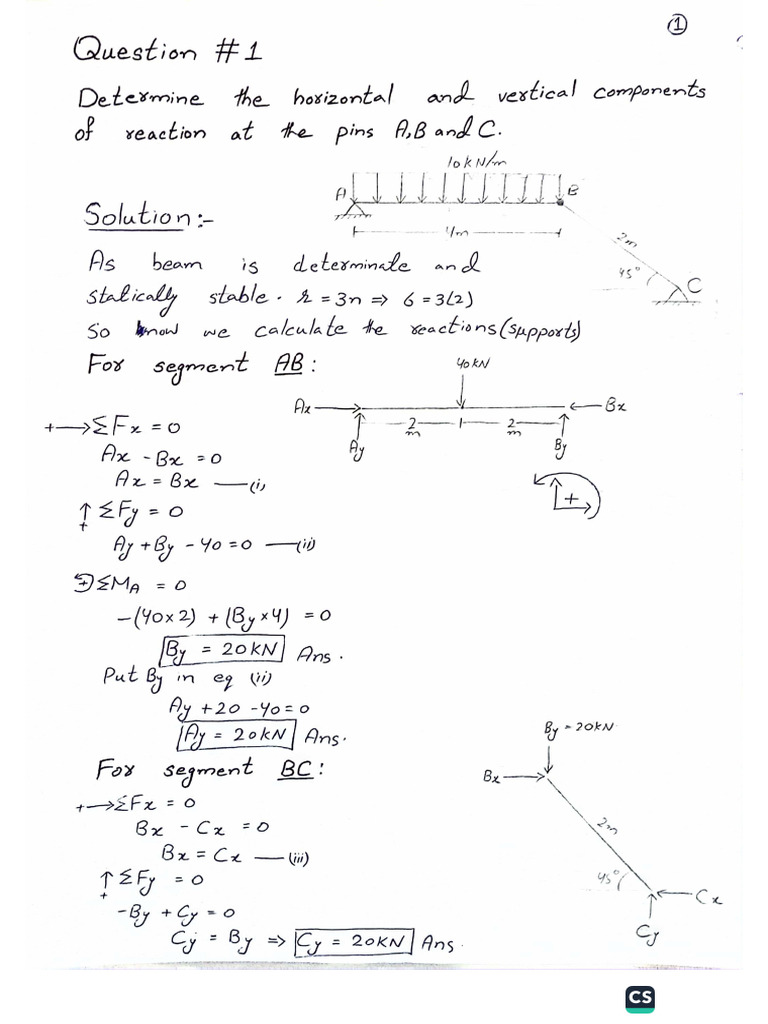 ①
Question #1
Determine the horizontal and vertical components
of reaction at the pins A, B and C.
10kN/m
A
B
Solution:-
4m
2m
45°
C
As beam is determinate and
statically stable. r = 3n ⇒ 6 = 3(2)
So know we calculate the reactions (supports)
For segment AB:
40kN
Ax
Bx
2 m
2 m
Ay
By
+
+→ΣFx = 0
Ax - Bx = 0
Ax = Bx —(i)
↑+ ΣFy = 0
Ay + By - 40 = 0 —(ii)
↺+ ΣMA = 0
-(40×2) + (By×4) = 0
By = 20kN Ans.
Put By in eq (ii)
Ay + 20 - 40 = 0
Ay = 20kN Ans.
For segment BC:
By = 20kN
Bx
2m
45°
Cx
Cy
+→ΣFx = 0
Bx - Cx = 0
Bx = Cx —(iii)
↑+ ΣFy = 0
-By + Cy = 0
Cy = By ⇒ Cy = 20kN Ans.
CS